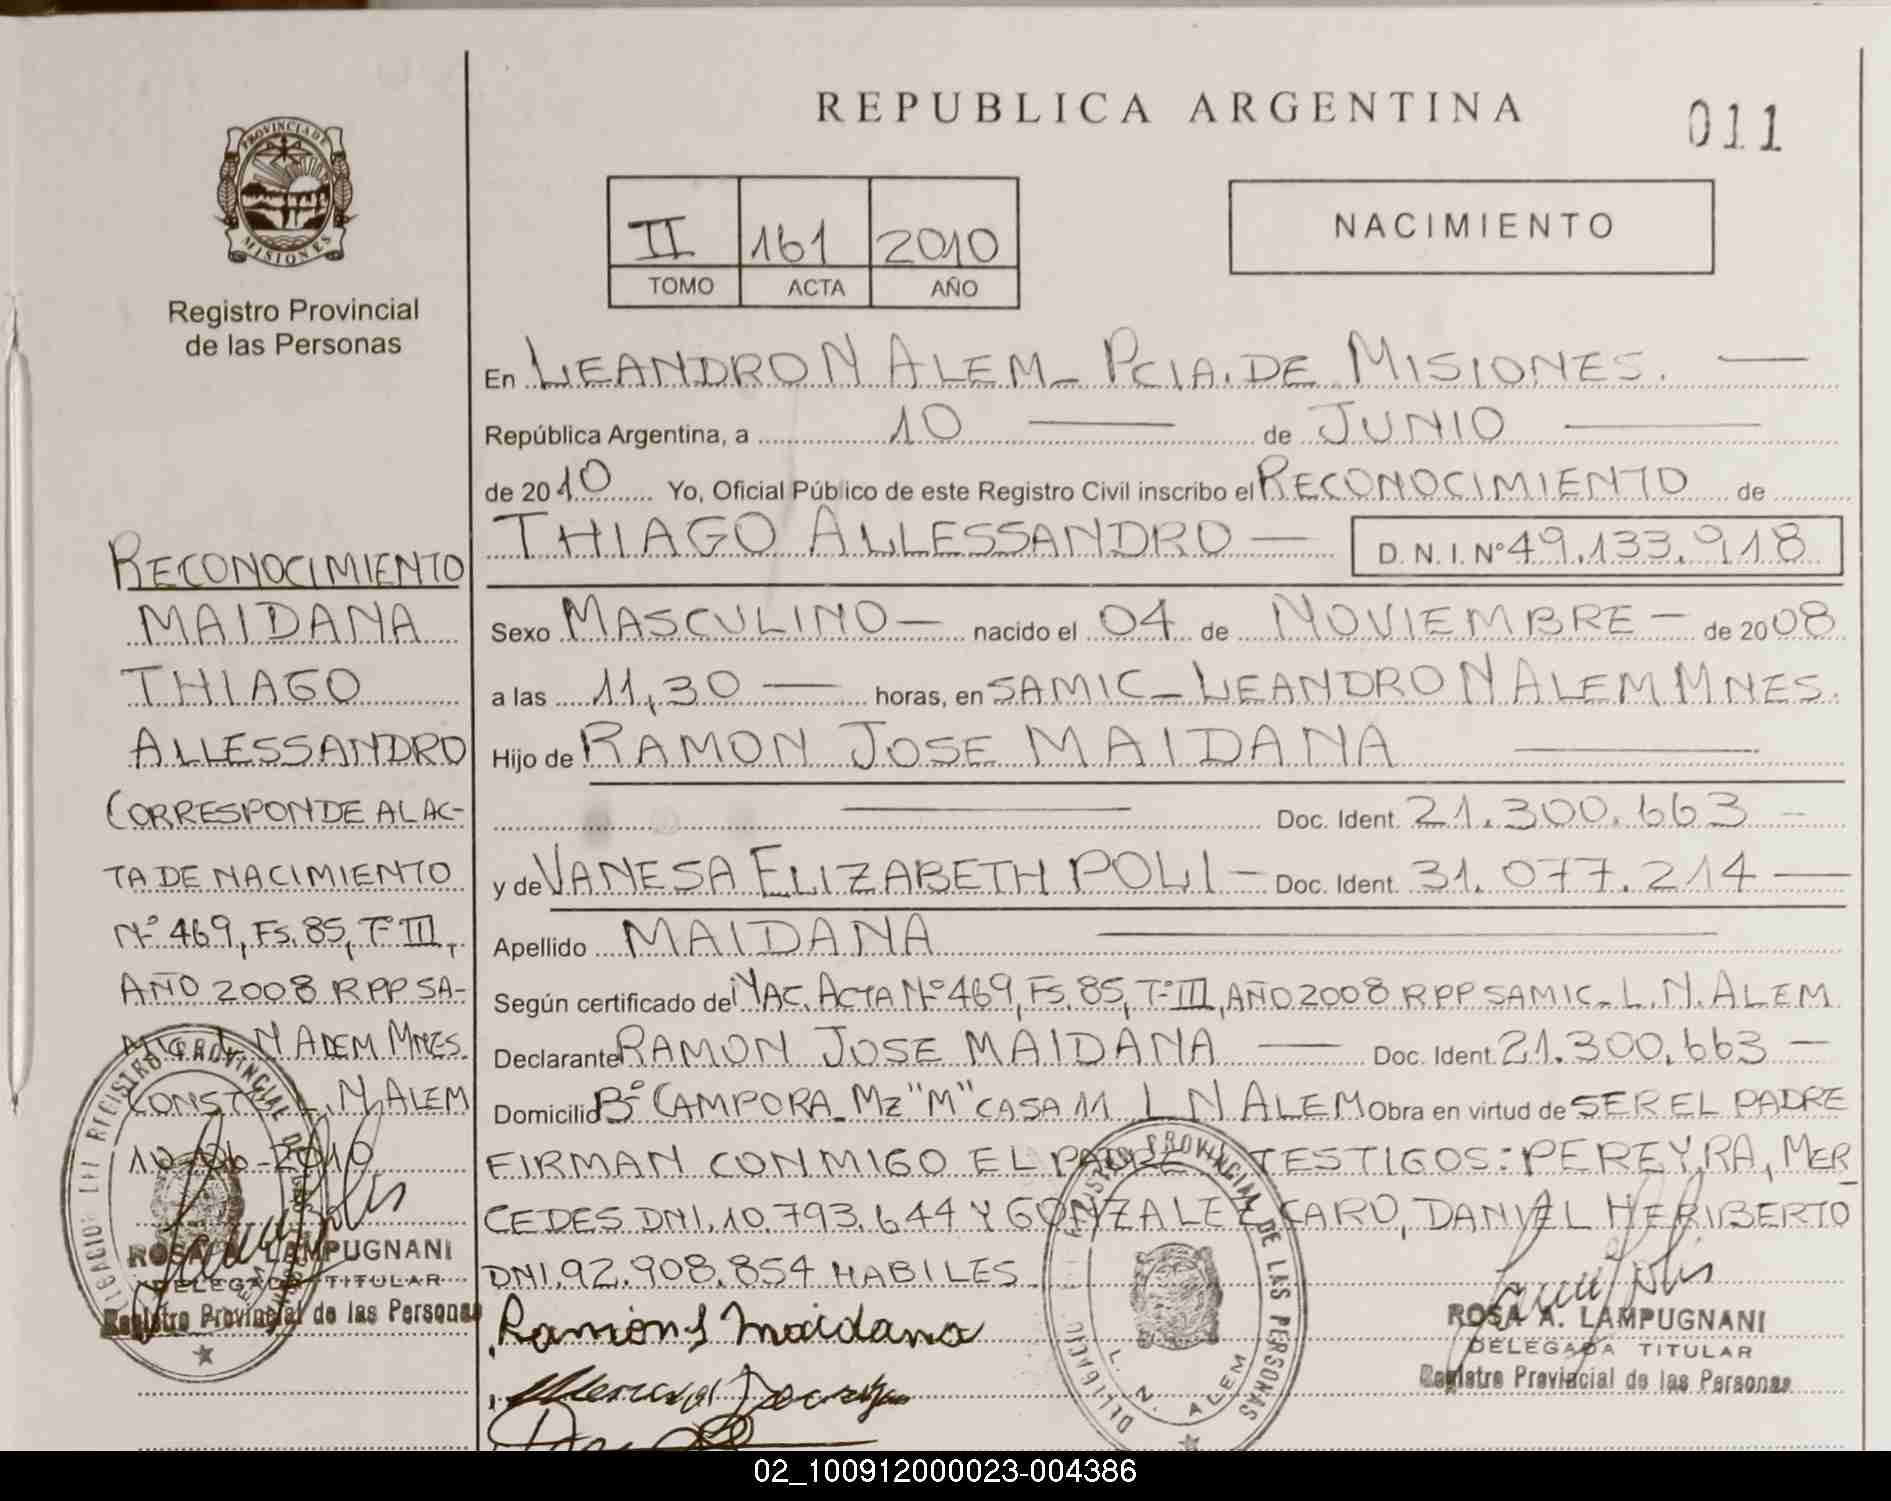 REPUBLICA ARGENTINA
011
PROVINCIA DE
MISIONES
Registro Provincial
de las Personas
II 161 2010
TOMO ACTA AÑO
NACIMIENTO
En LEANDRO N ALEM_ PCIA. DE MISIONES.
República Argentina, a 10 de JUNIO
de 2010 Yo, Oficial Público de este Registro Civil inscribo el RECONOCIMIENTO de
THIAGO ALLESSANDRO — D.N.I. Nº 49.133.918
Sexo MASCULINO — nacido el 04 de NOVIEMBRE — de 2008
a las 11,30 — horas, en SAMIC_ LEANDRO N ALEM MNES.
Hijo de RAMON JOSE MAIDANA
Doc. Ident. 21.300.663 —
y de VANESA ELIZABETH POLI — Doc. Ident. 31.077.214 —
Apellido MAIDANA
Según certificado de NAC. ACTA Nº 469, Fs. 85, Tº III, AÑO 2008 RPP SAMIC_ L.N. ALEM
Declarante RAMON JOSE MAIDANA — Doc. Ident. 21.300.663 —
Domicilio Bº CAMPORA_ Mz "M" CASA 11 L N ALEM Obra en virtud de SER EL PADRE
FIRMAN CONMIGO EL PADRE TESTIGOS: PEREYRA, MER_
CEDES DNI. 10.793.644 Y GONZALEZ CARO, DANIEL HERIBERTO
DNI. 92.908.854 HABILES
Ramon J Maidana
RECONOCIMIENTO
MAIDANA
THIAGO
ALLESSANDRO
CORRESPONDE AL AC-
TA DE NACIMIENTO
Nº 469, Fs. 85, Tº III,
AÑO 2008 RPP SA-
MIC L N ALEM MNES.
CONSTE L. N. ALEM
10-06-2010
ROSA A. LAMPUGNANI
DELEGADA TITULAR
Registro Provincial de las Personas
REGISTRO PROVINCIAL DE LAS PERSONAS
L. N. ALEM
ROSA A. LAMPUGNANI
DELEGADA TITULAR
Registro Provincial de las Personas
02_100912000023-004386